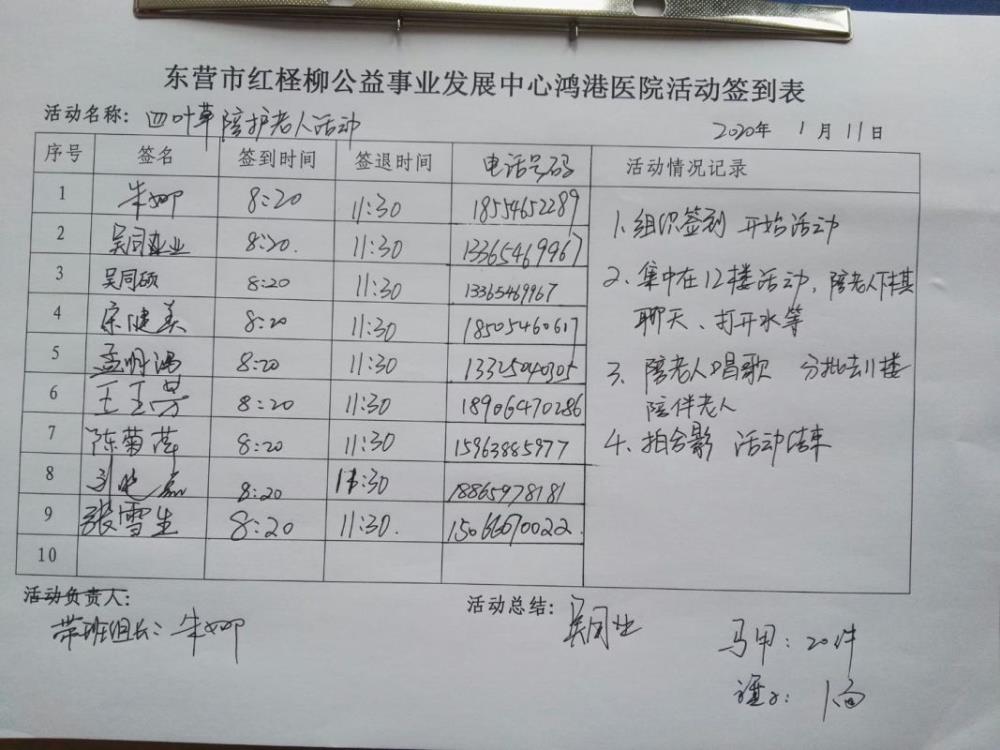 东营市红柽柳公益事业发展中心鸿港医院活动签到表
活动名称：四叶草陪护老人活动
2020年 1月11日
序号 签名 签到时间 签退时间 电话号码 活动情况记录
1 8:20 11:30 18554652289
2 吴同业 8:20. 11:30 13365469967
3 吴同硕 8:20 11:30 13365469967
4 宋健美 8:20 11:30 18505460617
5 8:20 11:30 13325040305
6 王玉芳 8:20 11:30 18906470286
7 陈菊萍 8:20 11:30 15963885977
8 8:20 11:30 18865978181
9 张雪生 8:20 11:30. 15066670022.
10
1.组织签到 开始活动
2、集中在12楼活动，陪老人下棋
聊天、打开水等
3、陪老人唱歌 分批去11楼
陪伴老人
4、拍合影 活动结束
活动负责人：
带班组长：
活动总结：吴同业
马甲：20件
1面